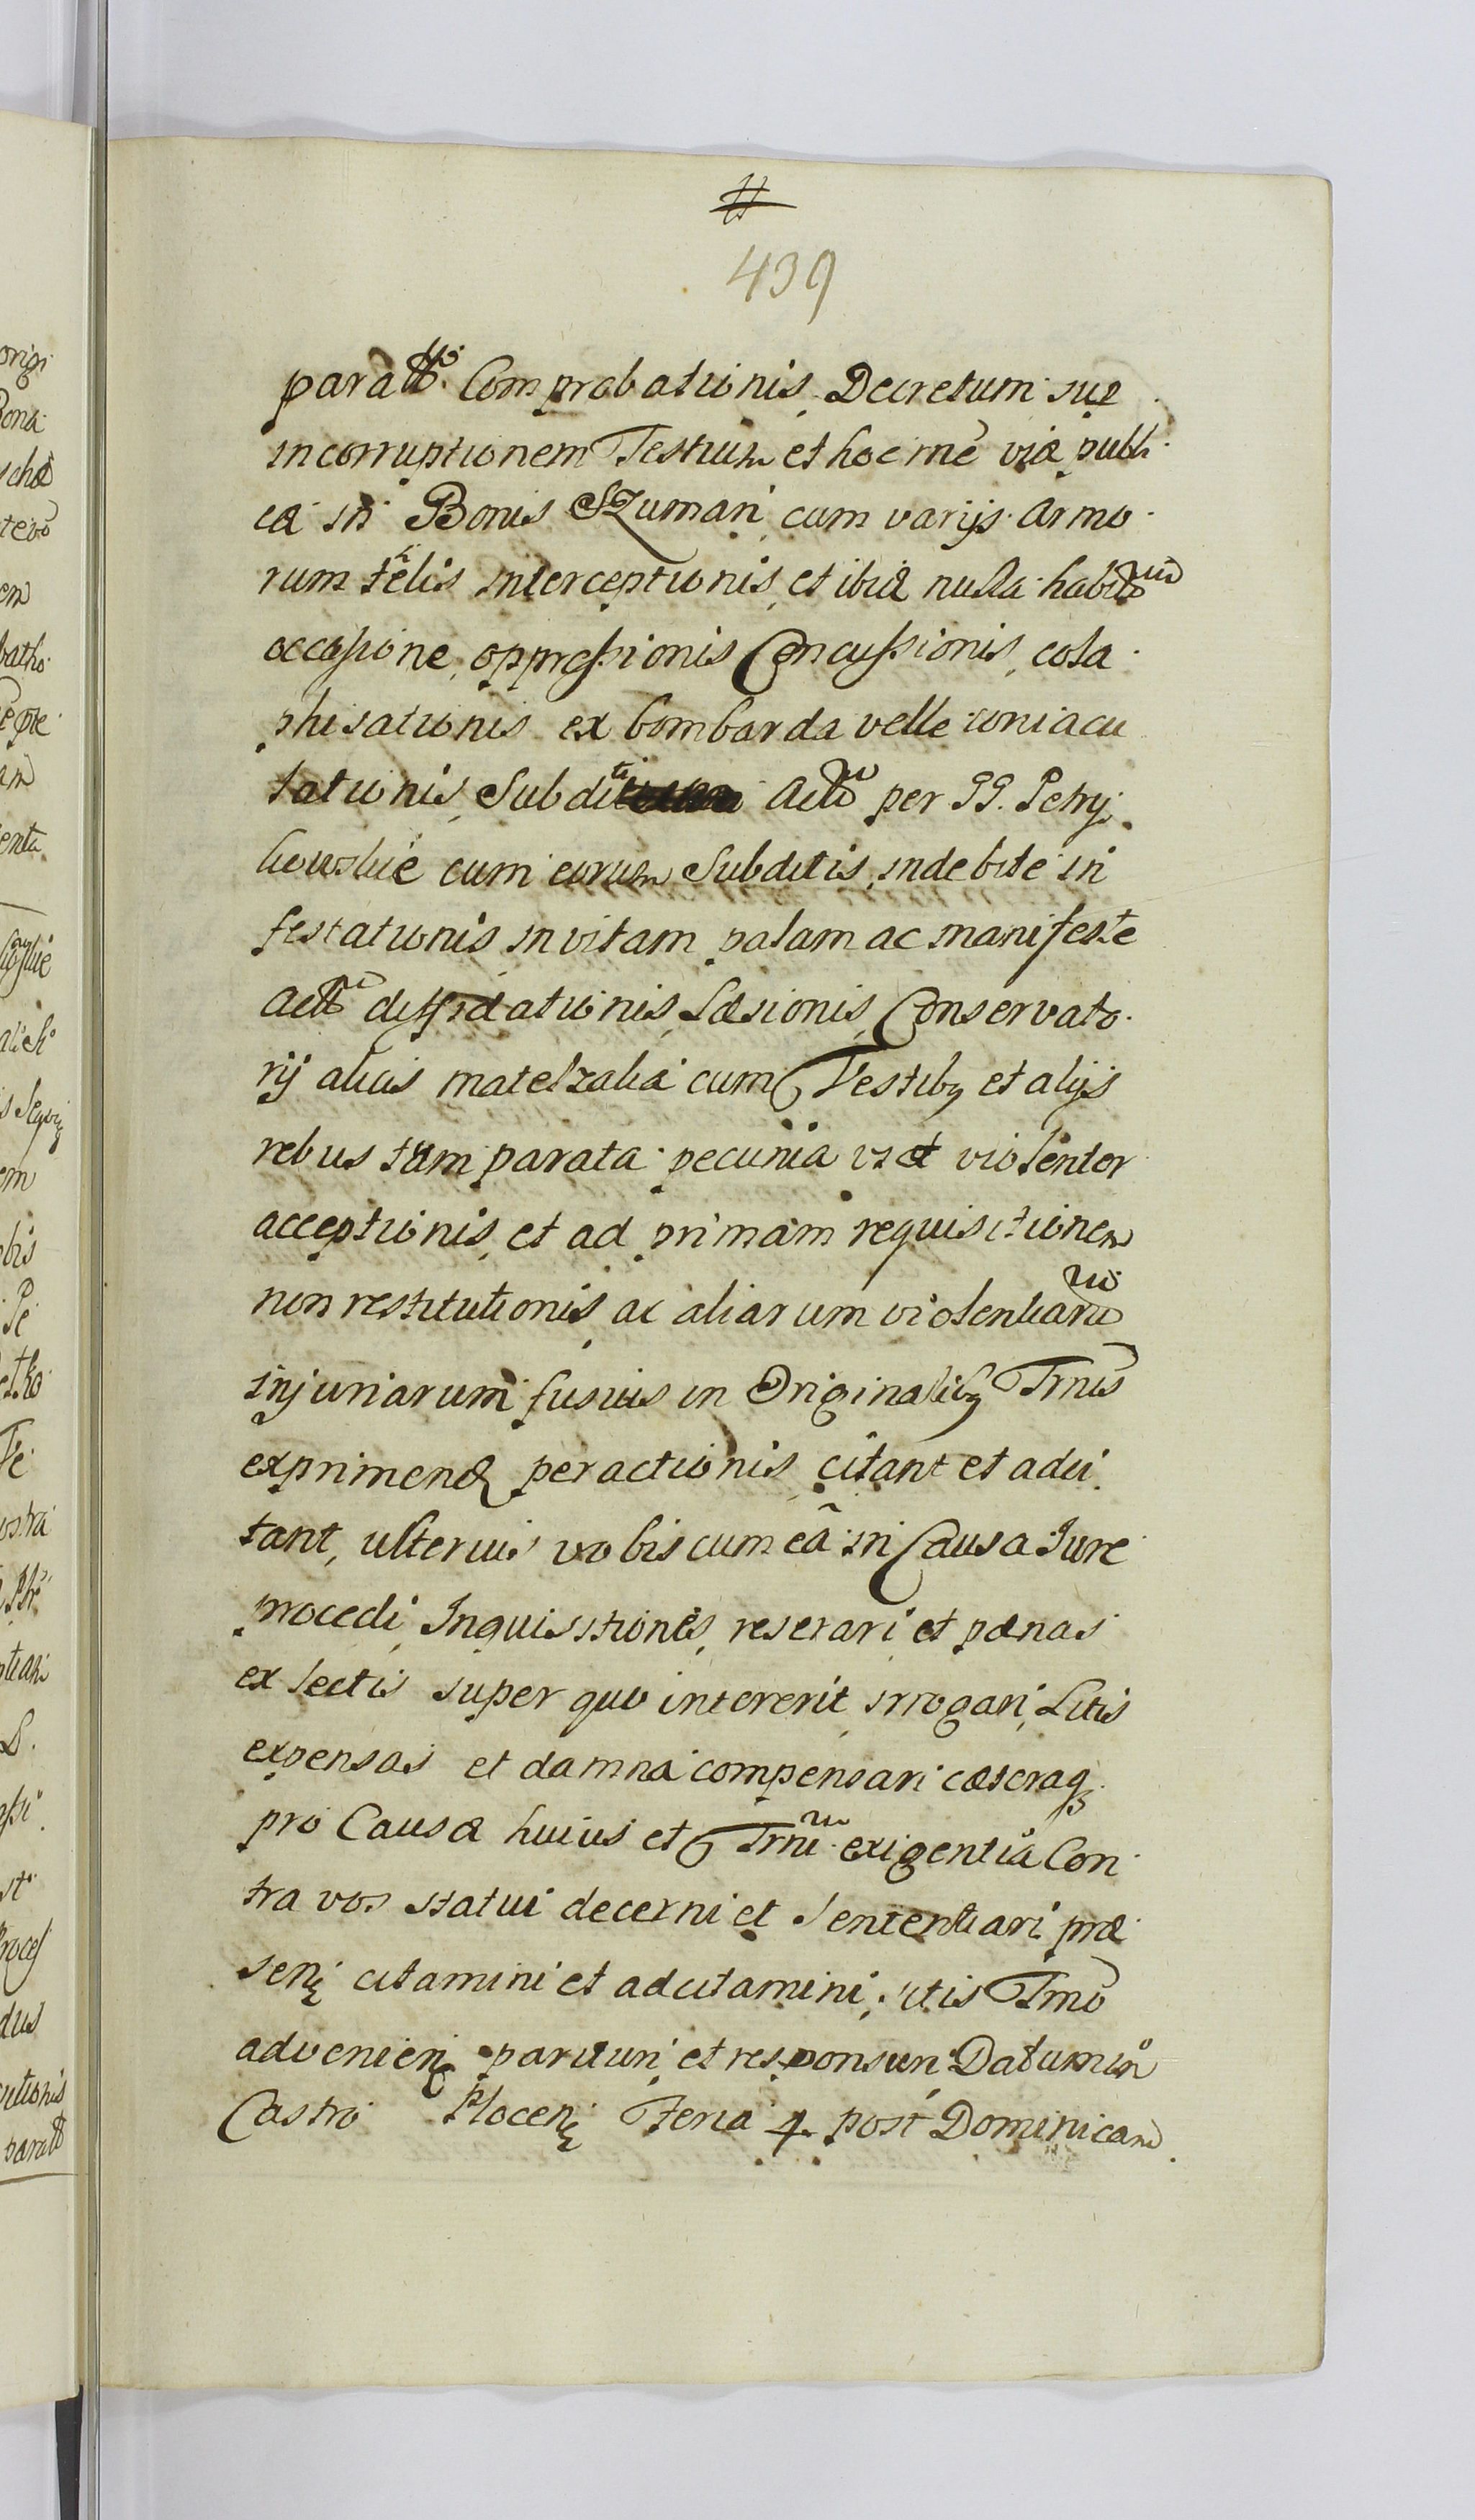 439
Comprobationis, Decretum sue
incorruptionem Testium et hoc me via publi
ca in Bonis Szumani cum varijs armo
rum telis interceptionis, et ibid nulla
occasione, oppressionis Concussionis, cola
phisationis ex bombarda velle coniacu
lationis, Subditi per GG. Petry
cum eorum Subditis, indebite in
festationis in vitam palam ac manifeste
diffidationis, Læsionis, Conservato
rij alias matelzalia cum Vestibq et alijs
rebus tum parata pecunia violenter
acceptionis, et ad primam requisitionem
non restitutionis, ac aliarum violentiaru
injuriarum fusius in Originalibq Trnis
exprimend peractionis, citant et adci
tant, ulterius vobiscum ea in Causa Jure
procedi, Inquisitiones, reserari et pænas
ex lectis super quo intererit irrogari, Litis
expensas et damna compensari cæteraq
pro Causæ huius et Trni exigentia Con
tra vos statui decerni et Sententiari præ
sen citamini et adcitamini, sitis Trno
advenien parituri et responsuri Datum in
Castro Plocen Feria 4 post Dominicam